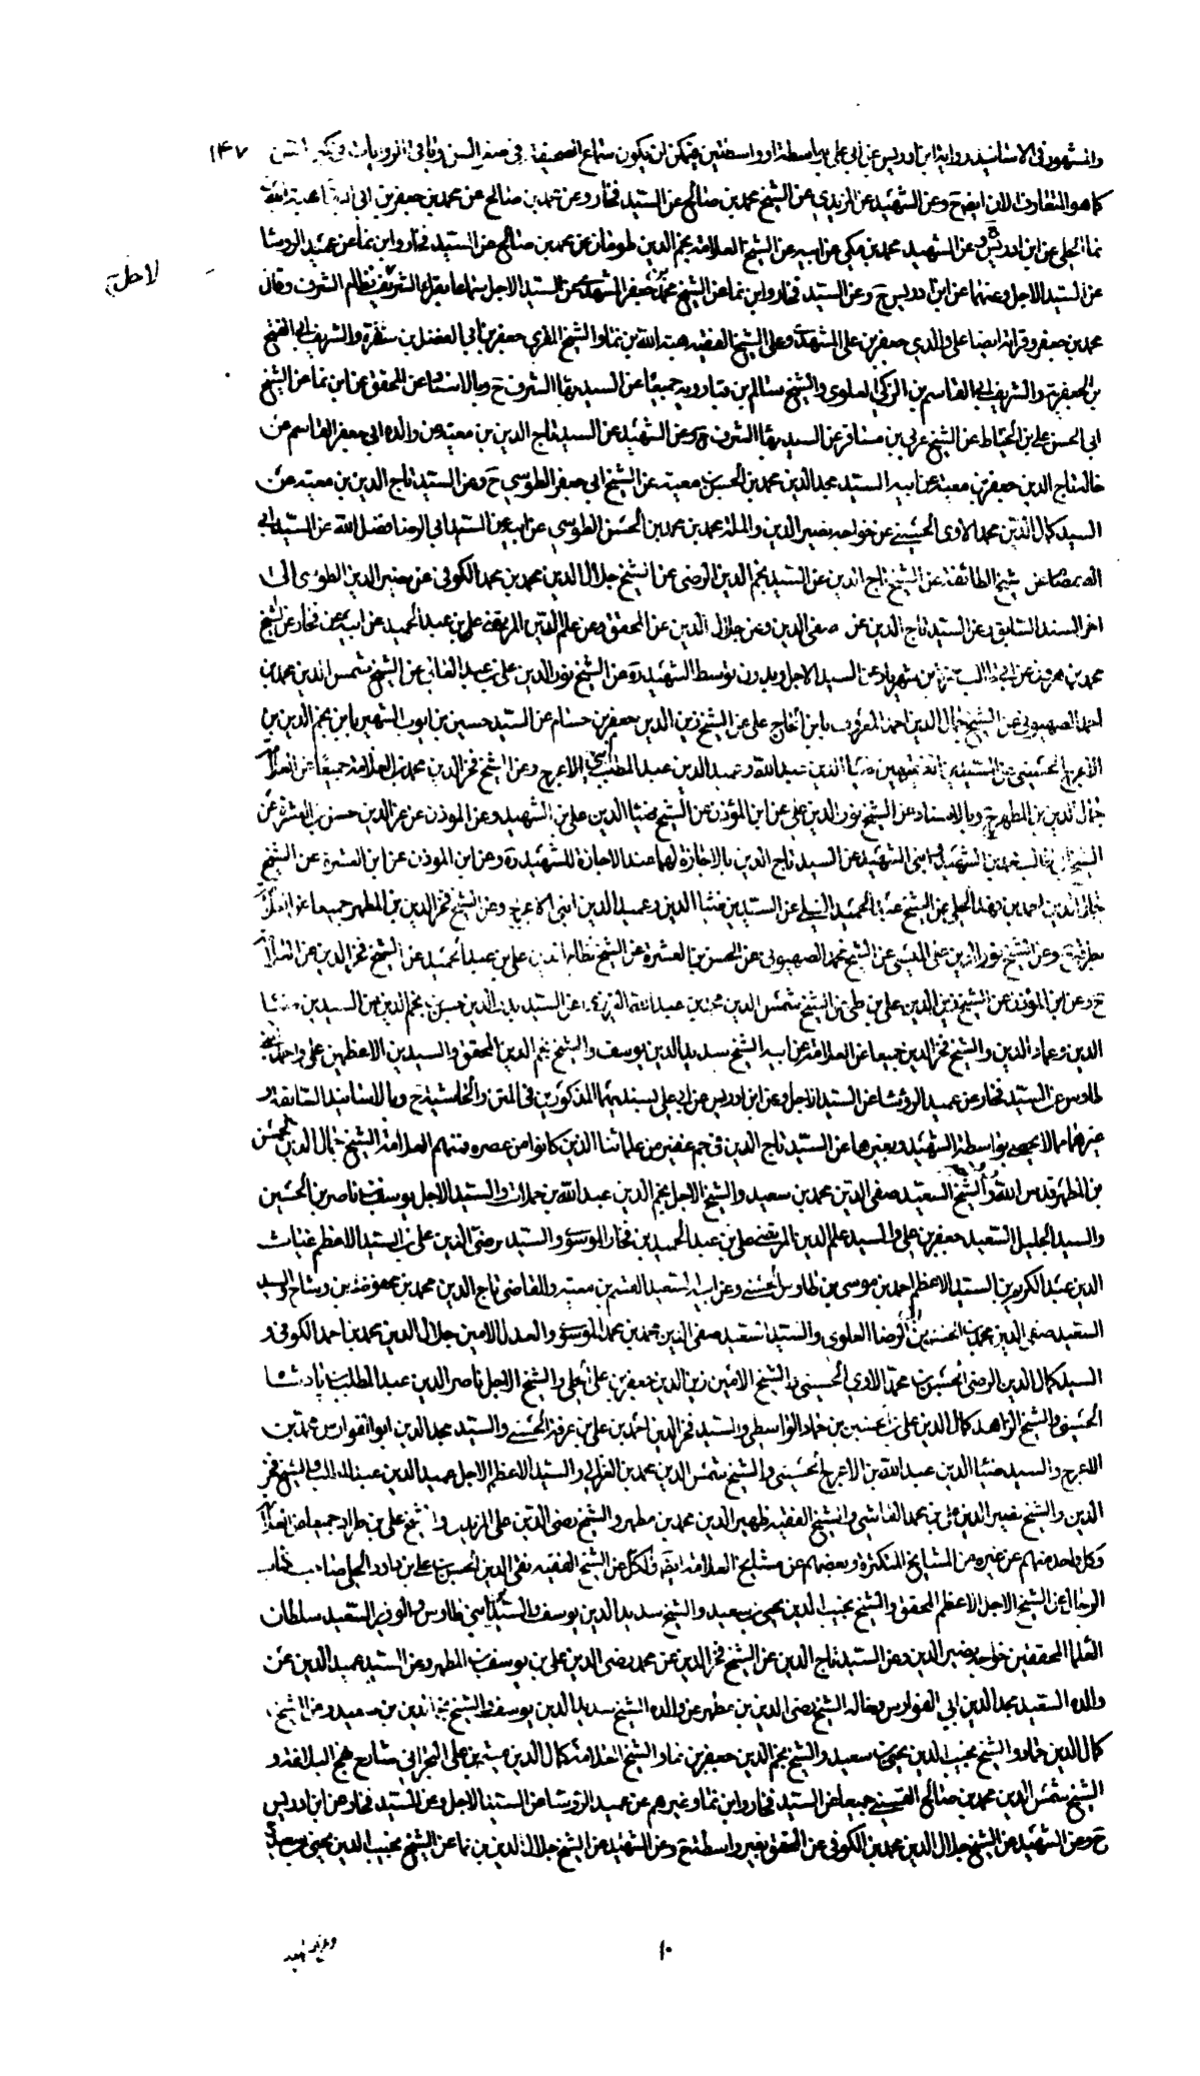 والمشهور في الاسانيد رواية ابن ادريس عن ابي علي بواسطة او واسطتين فيمكن ان يكون سماع الصحيفة في صغر السن وباقي الروايات في ١٤٧
كما هو المتعارف الان ايضا ح وعن الشهيد عن المزيدي عن الشيخ محمد بن صالح عن السيد فخار وعن محمد بن صالح عن محمد بن جعفر بن ابي
نما الحلي عن ابن ادريس وعن الشهيد محمد بن مكي عن ابيه عن الشيخ العلامة نجم الدين طومان عن محمد بن صالح عن السيد فخار وابن نما عن عميد الرؤسا
عن السيد الاجل وعنهما عن ابن ادريس ح وعن السيد فخار وابن نما عن الشيخ محمد بن جعفر المشهدي عن السيد الاجل سماعا بقراءة الشريف نظام الشرف وقال
محمد بن جعفر وقراته ايضا على والدي جعفر بن علي المشهدي وعلى الشيخ الفقيه هبة الله بن نما والشيخ المقري جعفر بن ابي الفضل بن شقرة والشريف ابي الفتح
بن الجعفرية والشريف ابي القاسم بن الزكي العلوي والشيخ سالم بن قبادويه جميعا عن السيد بها الشرف ح وبالاسناد عن المحقق عن ابن نما عن الشيخ
ابي الحسن علي بن الخياط عن الشيخ عربي بن مسافر عن السيد بها الشرف ح وعن الشهيد عن السيد تاج الدين بن معية عن والده ابي جعفر القاسم عن
خاله تاج الدين جعفر بن معية عن ابيه السيد مجد الدين محمد بن الحسن بن معية عن الشيخ ابي جعفر الطوسي ح وعن السيد تاج الدين بن معية عن
السيد كمال الدين محمد الاوي الحسيني عن خواجه نصير الدين والملة محمد بن محمد بن الحسن الطوسي عن ابيه عن السيد ابي الرضا فضل الله عن السيد ابي
الصمصام عن شيخ الطائفة عن الشيخ تاج الدين عن السيد نجم الدين الرضي عن الشيخ جلال الدين محمد بن محمد الكوفي عن نصير الدين الطوسي الى
اخر السند السابق وعن السيد تاج الدين عن صفي الدين وعن جلال الدين عن المحقق وعن علم الدين المرتضى علي بن عبد الحميد عن ابيه عن فخار عن الشيخ
محمد بن هرون عن ابي بن شهريار عن السيد الاجل وبدون توسط الشهيد ره عن الشيخ نور الدين علي بن عبد العالي عن الشيخ شمس الدين محمد بن
احمد الصهيوني عن الشيخ جمال الدين احمد المعروف بابن الحاج علي عن الشيخ زين الدين جعفر بن حسام عن السيد حسين بن ايوب الشهير بابن نجم الدين بن
الاعرج الحسيني عن السيدين الفقيهين ضيا الدين عبد الله وعميد الدين عبد المطلب ابني الاعرج وعن الشيخ فخر الدين محمد بن العلامة جميعا عن العلامة
جمال الدين بن المطهر ح وبالاسناد عن الشيخ نور الدين علي عن ابن المؤذن عن الشيخ ضيا الدين علي بن الشهيد وعن الموذن عن عز الدين حسن بن العشرة عن
الشيخ محمد بن الشهيد ابني الشهيد عن السيد تاج الدين بالاجازة لهما عند الاجازة للشهيد ره وعن ابن الموذن عن ابن العشرة عن الشيخ
جمال الدين احمد بن فهد الحلي عن الشيخ عبد الحميد النيلي عن السيدين ضيا الدين وعميد الدين ابني الاعرج وعن الشيخ فخر الدين بن المطهر جميعا عن العلامة
بطرقه ح وعن الشيخ نور الدين علي الميسي عن الشيخ محمد الصهيوني عن الحسن بن العشرة عن الشيخ نظام الدين علي بن عبد الحميد عن الشيخ فخر الدين عن العلامة
ح وعن ابن المؤذن عن الشيخ زين الدين علي بن طي عن الشيخ شمس الدين محمد بن عبد الله العريضي عن السيد بدر الدين حسن بن نجم الدين عن السيدين ضيا
الدين وعماد الدين والشيخ فخر الدين جميعا عن العلامة عن ابيه الشيخ سديد الدين يوسف والشيخ نجم الدين المحقق والسيدين الاعظمين علي واحمد ابني
طاوس عن السيد فخار عن عميد الرؤسا عن السيد الاجل وعن ابن ادريس عن ابي علي بسنديهما المذكورين في المتن والحاشية ح وبالاسانيد السابقة و
غيرها مما لا يحصى بواسطة الشهيد وبغيرها عن السيد تاج الدين في جم غفير من علمائنا الذين كانوا من عصره فمنهم العلامة الشيخ جمال الدين الحسن
بن المطهر قدس الله والشيخ السعيد صفي الدين محمد بن سعيد والشيخ الاجل نجم الدين عبد الله بن حملات والسيد الاجل يوسف بن ناصر بن الحسين
والسيد الجليل السعيد جعفر بن علي والسيد علم الدين المرتضى علي بن عبد الحميد بن فخار الموسوي والسيد رضي الدين علي بن السيد الاعظم غياث
الدين عبد الكريم بن السيد الاعظم احمد بن موسى بن طاوس الحسني وعن ابيه السعيد القسم بن معية والقاضي تاج الدين محمد بن محفوظ بن وشاح والسيد
السعيد صفي الدين محمد بن الحسن بن ابي الرضا العلوي والسيد السعيد صفي الدين محمد بن محمد الموسوي والعدل الامين جلال الدين محمد بن احمد الكوفي و
السيد كمال الدين الرضي الحسن بن محمد الاوي الحسيني والشيخ الامين زين الدين جعفر بن علي الحلي والشيخ الاجل ناصر الدين عبد المطلب بن پادشا
الحسيني والشيخ الزاهد كمال الدين علي بن الحسين بن حماد الواسطي والسيد فخر الدين احمد بن علي بن عرفة الحسني والسيد مجد الدين ابو الفوارس محمد بن
الاعرج والسيد ضيا الدين عبد الله بن الاعرج الحسيني والشيخ شمس الدين محمد بن الغزالي والسيد الاعظم الاجل عميد الدين عبد المطلب والشيخ فخر
الدين والشيخ نصير الدين علي بن محمد القاشي والشيخ الفقيه ظهير الدين محمد بن مطهر والشيخ رضي الدين علي المزيدي والشيخ علي بن طراد جميعا عن العلامة
وكل واحد منهم عن غيره من المشايخ المتكثرة وبعضهم عن مشايخ العلامة ايضا والكل عن الشيخ الفقيه تقي الدين الحسن بن علي بن داود الحلي صاحب كتاب
الرجال عن الشيخ الاجل الاعظم المحقق والشيخ نجيب الدين يحيى بن سعيد والشيخ سديد الدين يوسف والسيدين ابني طاوس والوزير السعيد سلطان
العلما المحققين خواجه نصير الدين وعن السيد تاج الدين عن الشيخ فخر الدين عن عمه رضي الدين علي بن يوسف بن المطهر وعن السيد عميد الدين عن
والده السعيد مجد الدين ابي الفوارس وخاله الشيخ رضي الدين بن مطهر عن والده الشيخ سديد الدين يوسف والشيخ نجم الدين بن سعيد وعن الشيخ
كمال الدين حماد والشيخ نجيب الدين يحيى بن سعيد والشيخ نجم الدين جعفر بن نما والشيخ العلامة كمال الدين ميثم بن علي البحراني شارح نهج البلاغة و
الشيخ شمس الدين محمد بن صالح القسيني جميعا عن السيد فخار وابن نما وغيرهم عن عميد الرؤسا عن السيد الاجل وعن السيد فخار عن ابن ادريس
ح وعن الشهيد عن الشيخ جلال الدين محمد بن الكوفي عن المحقق بغير واسطة ح وعن الشهيد عن الشيخ جلال الدين بن نما عن الشيخ نجيب الدين يحيى بن سعيد
١٠